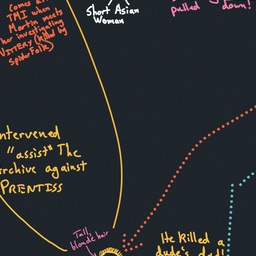 comes a
TMI when
Martin meets
her investigating
VITTERY (killed by
spider folk)
Short Asian
Woman
pulled down!
ntervened
"assist" The
archive against
PRENTISS
Tall,
blonde hair
He killed a
dude's dad!